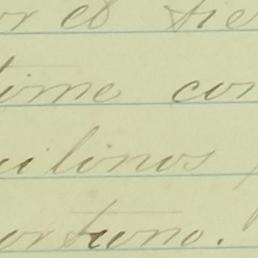 or el tie
time con
uilinos
ortuno.